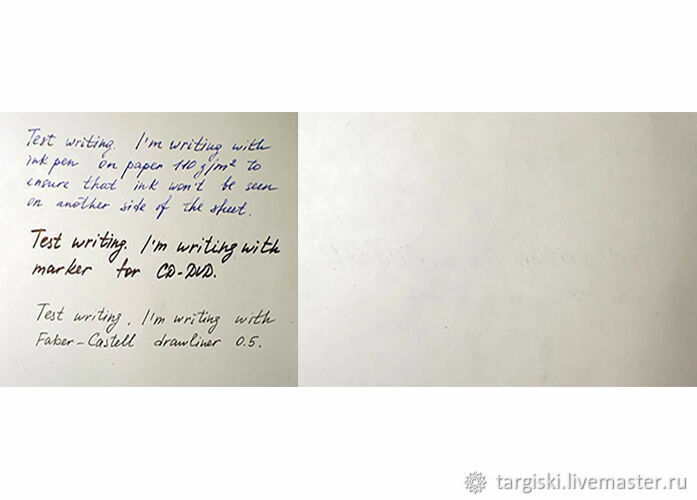 Test writing. I'm writing with
ink pen on paper 110 g/m² to
ensure that ink won't be seen
on another side of the sheet.
Test writing. I'm writing with
marker for CD-DVD.
Test writing. I'm writing with
Faber-Castell drawliner 0.5.
targiski.livemaster.ru